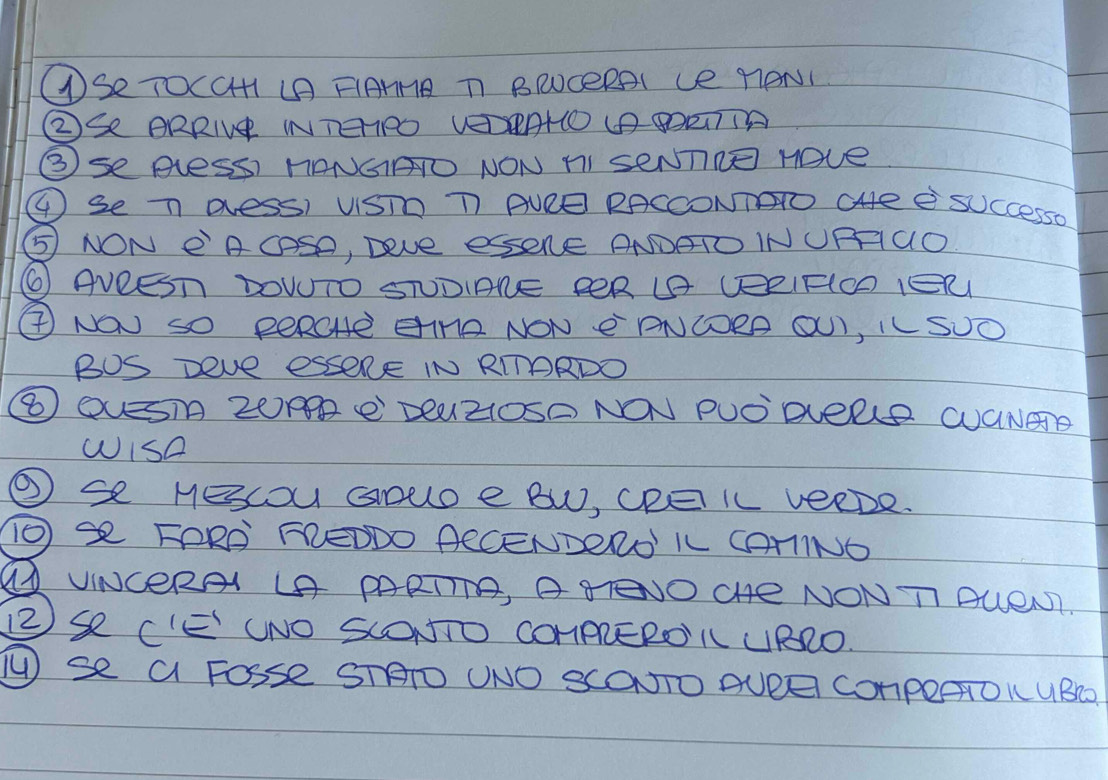 ① SE TOCCHI LA FIAMMA TI BRUCERAI LE MANI
② SE ARRIVI IN TEMPO VEDRAMO LA PARTITA
③ SE AVESSI MANGIATO NON MI SENTIREI MALE
④ SE TI AVESSI VISTO TI AVREI RACCONTATO CHE È SUCCESSO
⑤ NON È A CASA, DEVE ESSERE ANDATO IN UFFICIO
⑥ AVRESTI DOVUTO STUDIARE PER LA VERIFICA IERI
⑦ NON SO PERCHÈ EMMA NON È ANCORA QUI, IL SUO
BUS DEVE ESSERE IN RITARDO
⑧ QUESTA ZUPPA È DELIZIOSA NON PUÒ AVERLA CUCINATA
LUISA
⑨ SE MESCOLI GIALLO E BLU, CREI IL VERDE.
⑩ SE FARÀ FREDDO ACCENDERÒ IL CAMINO
⑪ VINCERAI LA PARTITA, A MENO CHE NON TI ALLENI.
⑫ SE C'È UNO SCONTO COMPRERÒ IL LIBRO.
⑭ SE CI FOSSE STATO UNO SCONTO AVREI COMPRATO IL LIBRO.